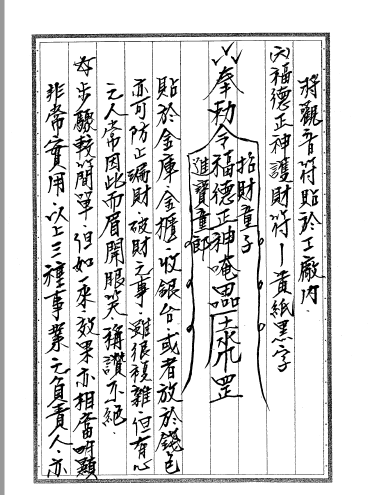 將觀音符貼於工廠內.
丙福德正神護財符－黃紙黑字
奉勅令福德正神唵㗊罡
招財童子
進寶童郎
貼於金庫.金櫃.收銀台.或者放於錢包
亦可防止漏財.破財之事.雖很複雜.但有心
之人常因此而眉開眼笑.稱讚不絕.
每步驟較簡單.但如一來效果亦相當明顯
非常實用.以上三種事業之負責人.亦